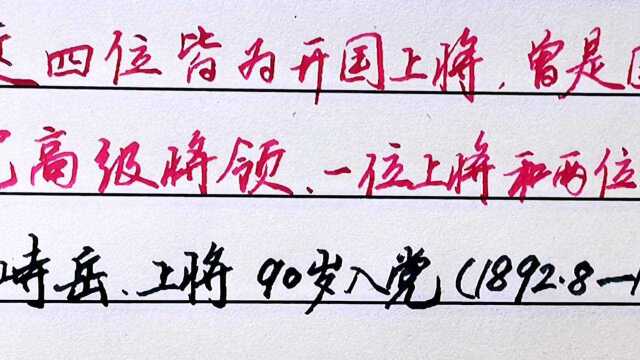 四位皆为开国上将，曾是
高级将领、一位上将和两位
峙岳、上将 90岁入党(1892.8—1